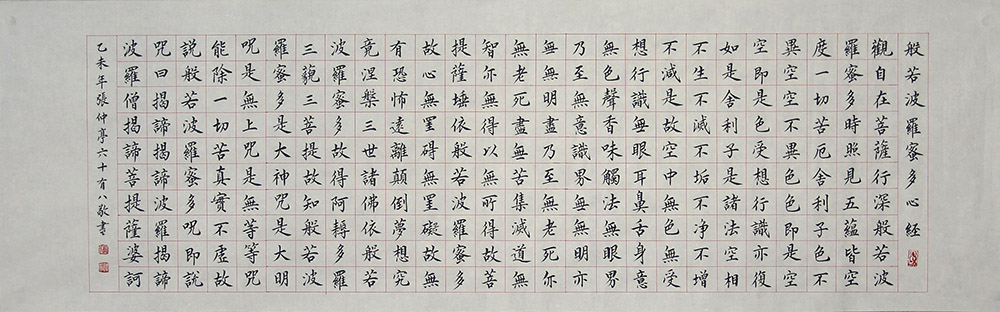 般若波羅蜜多心経
觀自在菩薩行深般若波
羅蜜多時照見五蘊皆空
度一切苦厄舍利子色不
異空空不異色色即是空
空即是色受想行識亦復
如是舍利子是諸法空相
不生不滅不垢不净不增
不減是故空中無色無受
想行識無眼耳鼻舌身意
無色聲香味觸法無眼界
乃至無意識界無無明亦
無無明盡乃至無老死亦
無老死盡無苦集滅道無
智亦無得以無所得故菩
提薩埵依般若波羅蜜多
故心無罣碍無罣礙故無
有恐怖遠離顛倒夢想究
竟涅槃三世諸佛依般若
波羅蜜多故得阿耨多羅
三藐三菩提故知般若波
羅蜜多是大神呪是大明
呪是無上呪是無等等呪
能除一切苦真實不虛故
說般若波羅蜜多呪即說
呪曰揭諦揭諦波羅揭諦
波羅僧揭諦菩提薩婆訶
乙未年張仲亭六十有八敬書